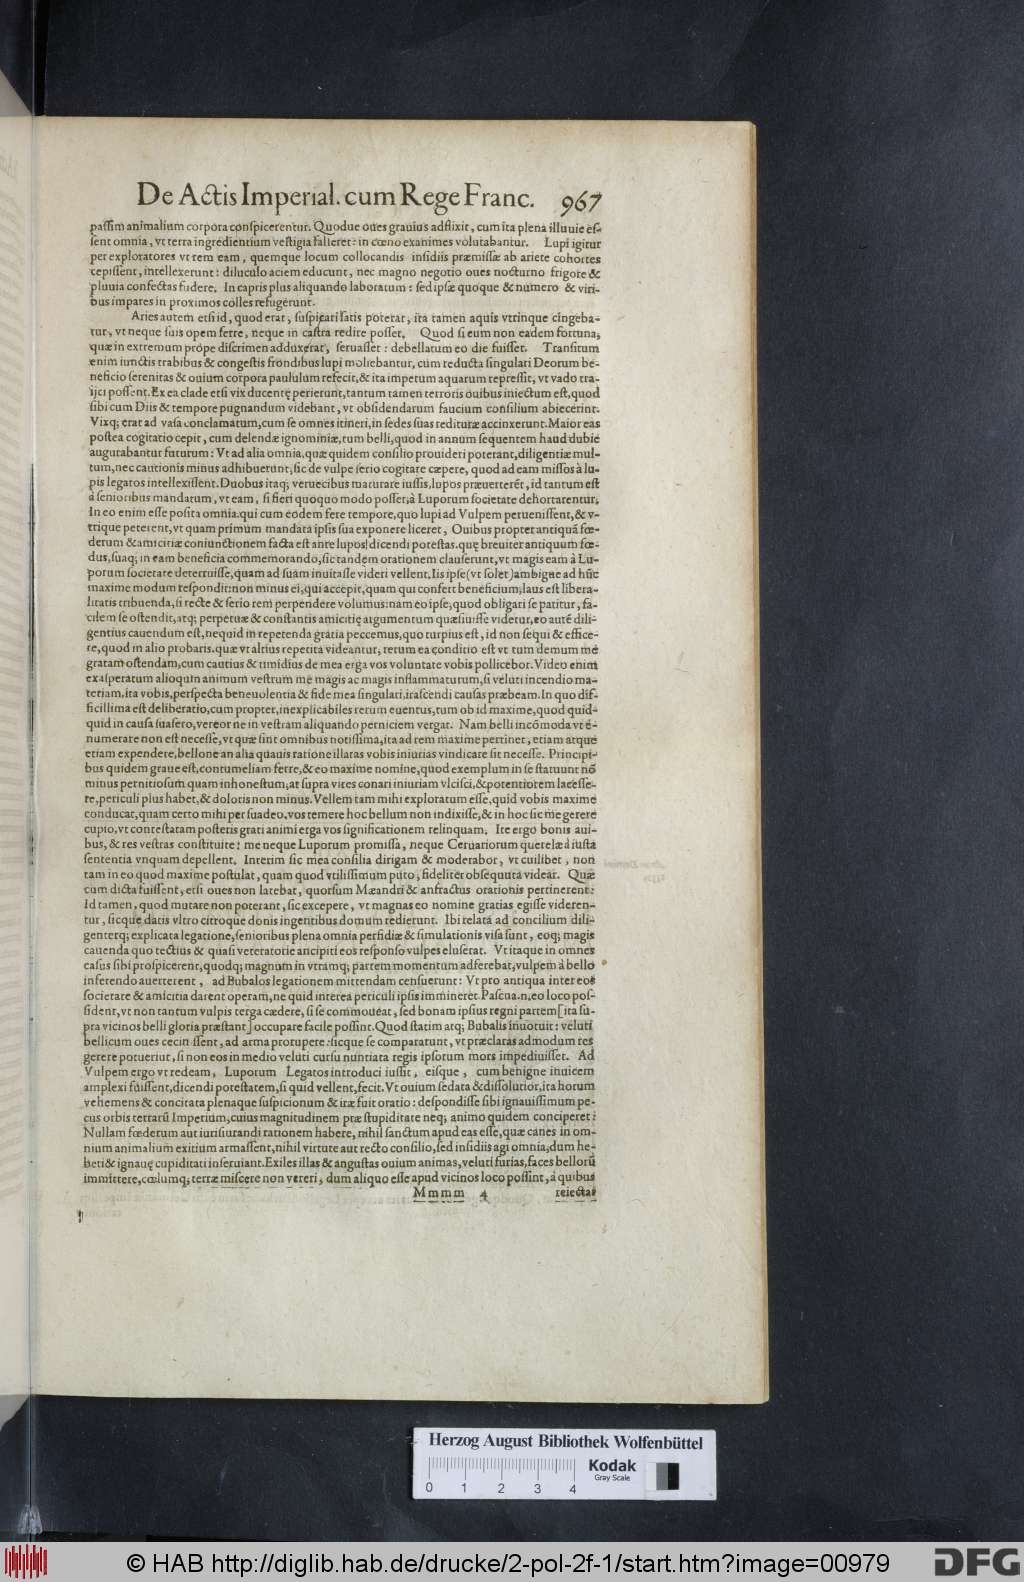 De Actis Imperial. cum Rege Franc. 967
passim animalium corpora conspicerentur. Quodue oues grauius adflixit, cum ita plena illuuie es-
sent omnia, vt terra ingredientium vestigia falleret: in cœno exanimes volutabantur. Lupi igitur
per exploratores vt rem eam, quemque locum collocandis insidiis præmissæ ab ariete cohortes
cepissent, intellexerunt: diluculo aciem educunt, nec magno negotio oues nocturno frigore &
pluuia confectas fudere. In capris plus aliquando laboratum: sed ipsæ quoque & numero & viri-
bus impares in proximos colles refugerunt.
Aries autem etsi id, quod erat, suspicari satis poterat, ita tamen aquis vtrinque cingeba-
tur, vt neque suis opem ferre, neque in castra redire posset. Quod si eum non eadem fortuna,
quæ in extremum prope discrimen adduxerat, seruasset: debellatum eo die fuisset. Transitum
enim iunctis trabibus & congestis frondibus lupi moliebantur, cum reducta singulari Deorum be-
neficio serenitas & ouium corpora paululum refecit, & ita impetum aquarum repressit, vt vado tra-
ijci possent. Ex ea clade etsi vix ducentę perierunt, tantum tamen terroris ouibus iniectum est, quod
sibi cum Diis & tempore pugnandum videbant, vt obsidendarum faucium consilium abiecerint.
Vixq; erat ad vasa conclamatum, cum se omnes itineri, in sedes suas redituræ accinxerunt. Maior eas
postea cogitatio cepit, cum delendæ ignominiæ, tum belli, quod in annum sequentem haud dubie
augurabantur futurum: Vt ad alia omnia, quæ quidem consilio prouideri poterant, diligentiæ mul-
tum, nec cautionis minus adhibuerunt, sic de vulpe serio cogitare cæpere, quod ad eam missos à lu-
pis legatos intellexissent. Duobus itaq; veruecibus maturare iussis, lupos præuerterēt, id tantum est
à senioribus mandatum, vt eam, si fieri quoquo modo posset, à Luporum societate dehortarentur.
In eo enim esse posita omnia. qui cum eodem fere tempore, quo lupi ad Vulpem peruenissent, & v-
trique peterent, vt quam primum mandata ipsis sua exponere liceret, Ouibus propter antiquā fœ-
derum & amicitiæ coniunctionem facta est ante lupos dicendi potestas. quę breuiter antiquum fœ-
dus, suaq; in eam beneficia commemorando, sic tandem orationem clauserunt, vt magis eam à Lu-
porum societate deterruisse, quam ad suam inuitasse videri vellent. Iis ipse (vt solet) ambigne ad hūc
maxime modum respondit: non minus ei, qui accepit, quam qui confert beneficium, laus est libera-
litatis tribuenda, si recte & serio rem perpendere volumus: nam eo ipse, quod obligari se patitur, fa-
cilem se ostendit, atq; perpetuæ & constantis amicitię argumentum quæsiuisse videtur, eo autē dili-
gentius cauendum est, nequid in repetenda gratia peccemus, quo turpius est, id non sequi & effice-
re, quod in alio probaris. quæ vt altius repetita videantur, rerum ea conditio est vt tum demum me
gratam ostendam, cum cautius & timidius de mea erga vos voluntate vobis pollicebor. Video enim
exasperatum alioquin animum vestrum me magis ac magis inflammaturum, si veluti incendio ma-
teriam, ita vobis, perspecta beneuolentia & fide mea singulari, irascendi causas præbeam. In quo dif-
ficillima est deliberatio, cum propter, inexplicabiles rerum euentus, tum ob id maxime, quod quid-
quid in causa suasero, vereor ne in vestram aliquando perniciem vergat. Nam belli incōmoda vt e-
numerare non est necesse, vt quæ sint omnibus notissima, ita ad rem maxime pertinet, etiam atque
etiam expendere, bellone an alia quauis ratione illatas vobis iniurias vindicare sit necesse. Principi-
bus quidem graue est, contumeliam ferre, & eo maxime nomine, quod exemplum in se statuunt nō
minus pernitiosum quam inhonestum, at supra vires conari iniuriam vlcisci, & potentiorem lacesse-
re, periculi plus habet, & doloris non minus. Vellem tam mihi exploratum esse, quid vobis maxime
conducat, quam certo mihi persuadeo, vos temere hoc bellum non indixisse, & in hoc sic me gerere
cupio, vt contestatam posteris grati animi erga vos significationem relinquam. Ite ergo bonis aui-
bus, & res vestras constituite: me neque Luporum promissa, neque Ceruariorum querelæ à iusta
sententia vnquam depellent. Interim sic mea consilia dirigam & moderabor, vt cuilibet, non
tam in eo quod maxime postulat, quam quod vtilissimum puto, fideliter obsequuta videar. Quæ
cum dicta fuissent, etsi oues non latebat, quorsum Mæandri & anfractus orationis pertinerent:
Id tamen, quod mutare non poterant, sic excepere, vt magnas eo nomine gratias egisse videren-
tur, sicque datis vltro citroque donis ingentibus domum redierunt. Ibi relata ad concilium dili-
genterq; explicata legatione, senioribus plena omnia perfidiæ & simulationis visa sunt, eoq; magis
cauenda quo tectius & quasi veteratorie ancipiti eos responso vulpes eluserat. Vt itaque in omnes
casus sibi prospicerent, quodq; magnum in vtramq; partem momentum adferebat, vulpem à bello
inferendo auerterent, ad Bubalos legationem mittendam censuerunt: Vt pro antiqua inter eos
societate & amicitia darent operam, ne quid interea periculi ipsis immineret. Pascua. n. eo loco pos-
sident, vt non tantum vulpis terga cædere, si se commoueat, sed bonam ipsius regni partem [ita su-
pra vicinos belli gloria præstant] occupare facile possint. Quod statim atq; Bubalis innotuit: veluti
bellicum oues cecinissent, ad arma prorupere: sicque se comparatunt, vt præclaras admodum res
gerere potuerint, si non eos in medio veluti cursu nuntiata regis ipsorum mors impediuisset. Ad
Vulpem ergo vt redeam, Luporum Legatos introduci iussit, eisque, cum benigne inuicem
amplexi fuissent, dicendi potestatem, si quid vellent, fecit. Vt ouium sedata & dissolutior, ita horum
vehemens & concitata plenaque suspicionum & iræ fuit oratio: despondisse sibi ignauissimum pe-
cus orbis terrarū Imperium, cuius magnitudinem præ stupiditate neq; animo quidem conciperet:
Nullam fœderum aut iurisiurandi rationem habere, nihil sanctum apud eas esse, quæ canes in om-
nium animalium exitium armassent, nihil virtute aut recto consilio, sed insidiis agi omnia, dum he-
beti & ignauę cupiditati inseruiant. Exiles illas & angustas ouium animas, veluti furias, faces bellorū
immittere, cœlumq; terræ miscere non vereri, dum aliquo esse apud vicinos loco possint, à quibus
Mmmm 4 reiectas
Herzog August Bibliothek Wolfenbüttel
Kodak
Gray Scale
0 1 2 3 4
© HAB http://diglib.hab.de/drucke/2-pol-2f-1/start.htm?image=00979
DFG